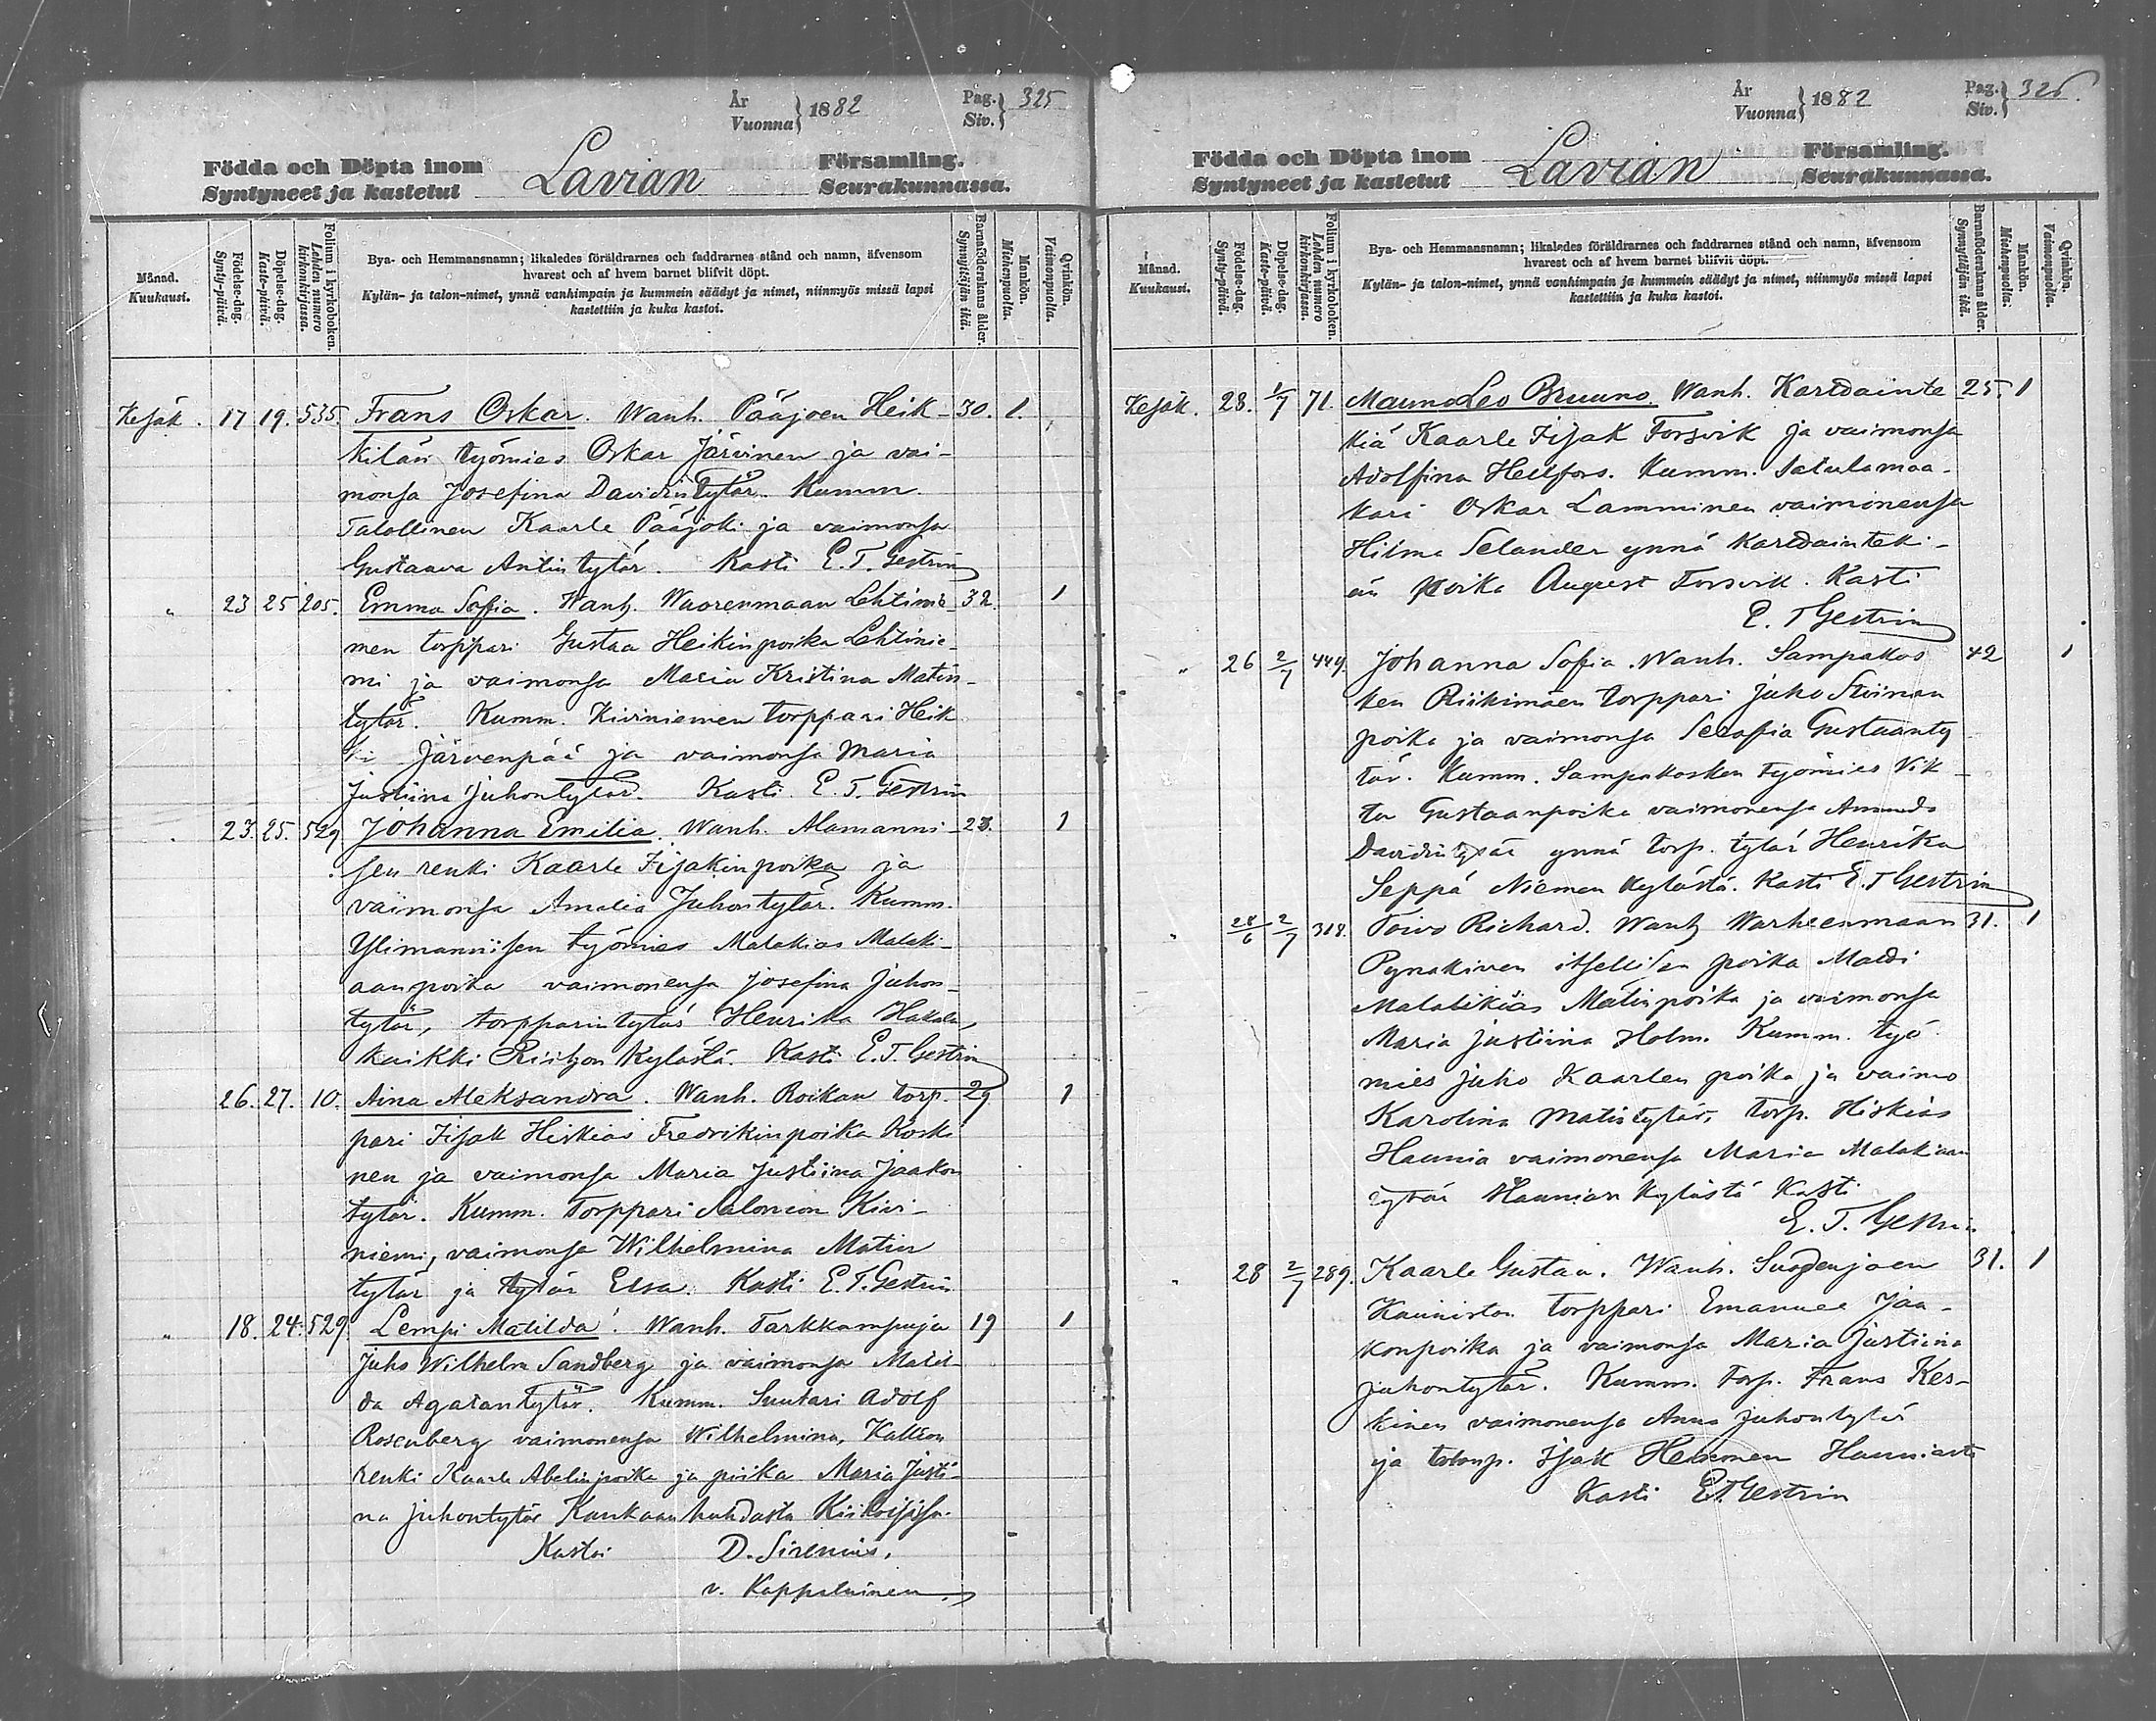 År
Vuonna} 1882
Pag.
Siv.} 325
Födda och Döpta inom
Syntyneet ja kastetut
Lavian
Församling.
Seurakunnassa.
Månad.
Kuukausi.
Födelse-dag.
Synty-päivä.
Döpelse-dag.
Kaste-päivä.
Folium i kyrkoboken.
Lehden numero kirkonkirjassa.
Bya- och Hemmansnamn; likaledes föräldrarnes och faddrarnes stånd och namn, äfvensom
hvarest och af hvem barnet blifvit döpt.
Kylän- ja talon-nimet, ynnä vanhimpain ja kummein säädyt ja nimet, niinmyös missä lapsi
kastettiin ja kuka kastoi.
Barnaföderskans ålder.
Synnyttäjän ikä.
Mankön.
Miehenpuolta.
Qvinkön.
Vaimonpuolta.
Kesäk. 17 19. 535. Frans Oskar. Wanh. Pääjoen Heik- 30. 1.
kilän työmies Oskar Järvinen ja vai-
monsa Josefina Davidintytär. Kumm.
Talollinen Kaarle Pääjoki ja vaimonsa
Gustaava Antintytär. Kasti E. T. Gestrin
" 23 25 205. Emma Sofia. Wanh. Wuorenmaan Lehtinie- 32. 1
men torppari Gustaa Heikinpoika Lehtinie-
mi ja vaimonsa Maria Kristina Matin-
tytär. Kumm. Kiviniemen torppari Heik
ki Järvenpää ja vaimonsa Maria
Justiina Juhontytär. Kasti E. T. Gestrin
" 23. 25. 529 Johanna Emilia. Wanh. Alamanni- 23. 1
sen renki Kaarle Iisakinpoika ja
vaimonsa Amalia Juhontytär. Kumm.
Ylimannisen työmies Malakias Malaki-
aanpoika vaimonensa Josefina Juhon-
tytär, torpparintytär Henrika Hakala,
kaikki Kylästä. Kasti E. T. Gestrin
26. 27. 10. Aina Aleksandra. Wanh. Roikan torp- 29 1
pari Iisak Hiskias Fredrikinpoika Koski
nen ja vaimonsa Maria Justiina Jaakon
tytär. Kumm. Torppari Salomon Kivi-
niemi, vaimonsa Wilhelmina Matin
tytär ja tytär Elsa. Kasti E. T. Gestrin
" 18. 24. 529 Lempi Matilda. Wanh. Tarkkampuja 19 1
Juho Wilhelm Sandberg ja vaimonsa Matil-
da Agatantytär. Kumm. Suutari Adolf
Rosenberg vaimonensa Wilhelmina, Kallion
renki Kaarle Abelinpoika ja piika Maria Justi-
na Juhontytär Kankaanhuhdasta
Kastoi D. Sirenius,
v. Kappalainen
År
Vuonna} 1882
Pag.
Siv.} 326.
Födda och Döpta inom
Syntyneet ja kastetut
Lavian
Församling.
Seurakunnassa.
Månad.
Kuukausi.
Födelse-dag.
Synty-päivä.
Döpelse-dag.
Kaste-päivä.
Folium i kyrkoboken.
Lehden numero kirkonkirjassa.
Bya- och Hemmansnamn; likaledes föräldrarnes och faddrarnes stånd och namn, äfvensom
hvarest och af hvem barnet blifvit döpt.
Kylän- ja talon-nimet, ynnä vanhimpain ja kummein säädyt ja nimet, niinmyös missä lapsi
kastettiin ja kuka kastoi.
Barnaföderskans ålder.
Synnyttäjän ikä.
Mankön.
Miehenpuolta.
Qvinkön.
Vaimonpuolta.
Kesäk. 28. 1/7 71. Mauno Leo Bruuno. Wanh. Karvainte 25. 1
kiä Kaarle Iisak Forsvik ja vaimonsa
Adolfina Hellfors. Kumm. Satulamaa-
kari Oskar Lamminen vaimonensa
Hilma Selander ynnä Karvainteki-
än poika August Forsvik. Kasti
E. T Gestrin
" 26 2/7 449. Johanna Sofia. Wanh. Sampakos 42 1
ken Riikimäen torppari Juho Stiiman
poika ja vaimonsa Serafia Gustaanty
tär. Kumm. Sampakosken työmies Vik-
tor Gustaanpoika vaimonensa Amanda
Davidintytär ynnä torp. tytär Henrika
Seppä Niemen kylästä. Kasti E. T Gestrin
" 28/6 2/7 318. Toivo Richard. Wanh. Warheenmaan 31. 1
itsellisen poika
Matinpoika ja vaimonsa
Maria Justiina Holm. Kumm. työ
mies Juho Kaarlen poika ja vaimo
Karolina Matintytär, torp. Hiskias
Haunia vaimonensa Maria Malakiaan
tytär Haunian kylästä Kasti
E. T. Gestrin
" 28 2/7 289. Kaarle Gustaa. Wanh. Suodenjoen 31. 1
Kauniston torppari Emanuel Jaa-
konpoika ja vaimonsa Maria Justiina
Juhontytär. Kumm. Torp. Frans Kes-
kinen vaimonensa Anna Juhontytär
ja Isak Heinonen Hauniasta
Kasti E.T Gestrin